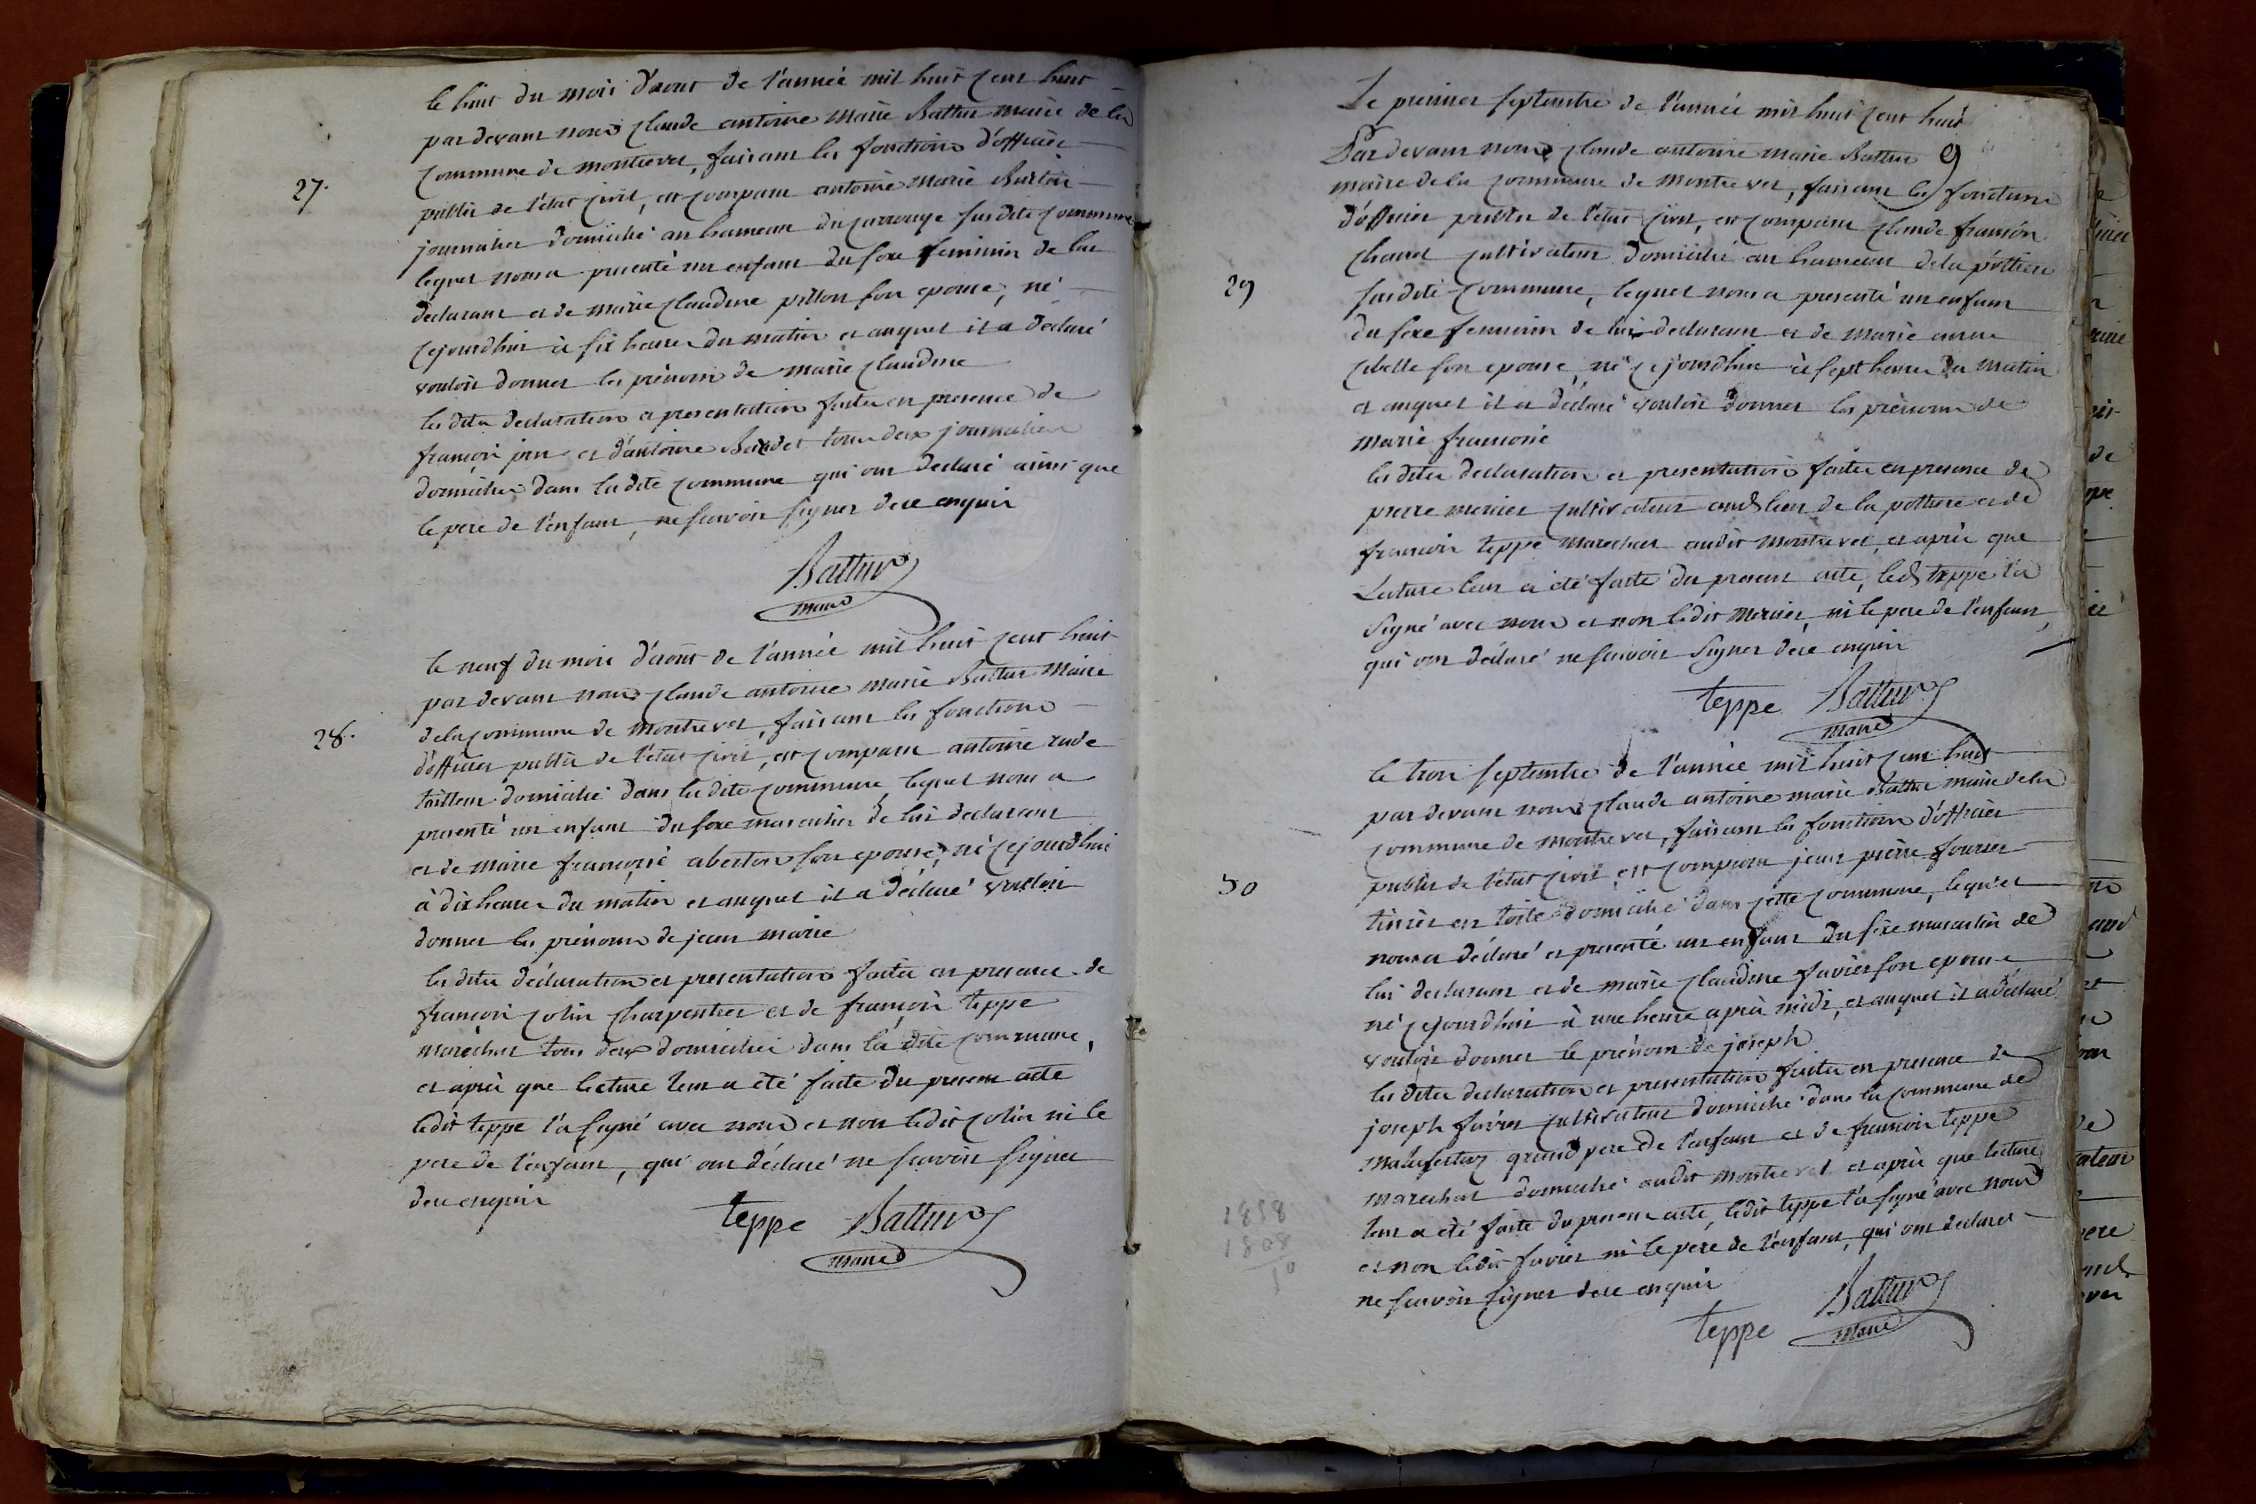 le huit du mois d'aout de l'année mil huit cent huit
par devant nous claude antoine marie Battur maire de la
commune de montrevel, faisant les fonctions d'officier
27.
public de l'état civil, est comparu antoine marie
journalier domicilié au hameau du susdite commune
lequel nous a presenté un enfant du sexe feminin de lui
declarant et de marie claudine pillon son epouse, né
cejourdhui à six heures du matin et auquel il a declaré
vouloir donner les prénoms de marie claudine
les dites declaration et presentation faites en presence de
françois et d'antoine tous deux journaliers
domiciliés dans ladite commune qui ont declaré ainsi que
le pere de l'enfant, ne scavoir signer de ce enquis
Battur
maire
le neuf du mois d'aout de l'année mil huit cent huit
par devant nous claude antoine marie Battur maire
de la commune de montrevel, faisant les fonctions
28.
d'officier public de l'état civil, est comparu antoine rude
tailleur domicilié dans ladite commune, lequel nous a
presenté un enfant du sexe masculin de lui declarant
et de marie françoise son epouse, né cejourdhui
à dix heures du matin et auquel il a déclaré vouloir
donner les prénoms de jean marie
les dites déclaration et presentation faites en presence de
françois colin charpentier et de françois teppe
maréchal tous deux domiciliés dans la dite commune,
et après que lecture leur a été faite du present acte
ledit teppe l'a signé avec nous et non ledit colin ni le
pere de l'enfant, qui ont déclaré ne scavoir signer
de ce enquis
teppe Battur
maire
Le premier septembre de l'année mil huit cent huit
Par devant nous claude antoine marie Battur 9
maire de la commune de montrevel, faisant les fonctions
d'officier public de l'état civil, est comparu claude françois
cultivateur domicilié au hameau de la
29
susdite commune, lequel nous a presenté un enfant
du sexe feminin de lui declarant et de marie anne
son epouse, né cejourdhui à sept heures du matin
et auquel il a déclaré vouloir donner les prénoms de
marie françoise
les dites declaration et presentation faites en presence de
pierre mercier cultivateur aud lieu de la et de
françois teppe marechal audit montrevel, et après que
Lecture leur a été faite du present acte, led teppe l'a
signé avec nous et non ledit mercier, ni le pere de l'enfant,
qui ont déclaré ne scavoir signer de ce enquis
teppe Battur
maire
le trois septembre de l'année mil huit cent huit
par devant nous claude antoine marie Battur maire de la
commune de montrevel, faisant les fonctions d'officier
public de l'état civil est comparu jean pierre
30
tissier en toile domicilié dans cette commune, lequel
nous a déclaré et presenté un enfant du sexe masculin de
lui declarant et de marie claudine favier son epouse
né cejourdhui à une heure après midi, et auquel il a déclaré
vouloir donner le prénom de joseph
les dites declaration et presentation faites en presence de
joseph favier cultivateur domicilié dans la commune de
malafretaz grand pere de l'enfant et de françois teppe
marechal domicilié audit montrevel et après que lecture
leur a été faite du present acte, ledit teppe l'a signé avec nous
et non ledit favier ni le pere de l'enfant, qui ont declaré
ne scavoir signer de ce enquis
1858
1808
teppe Battur
maire